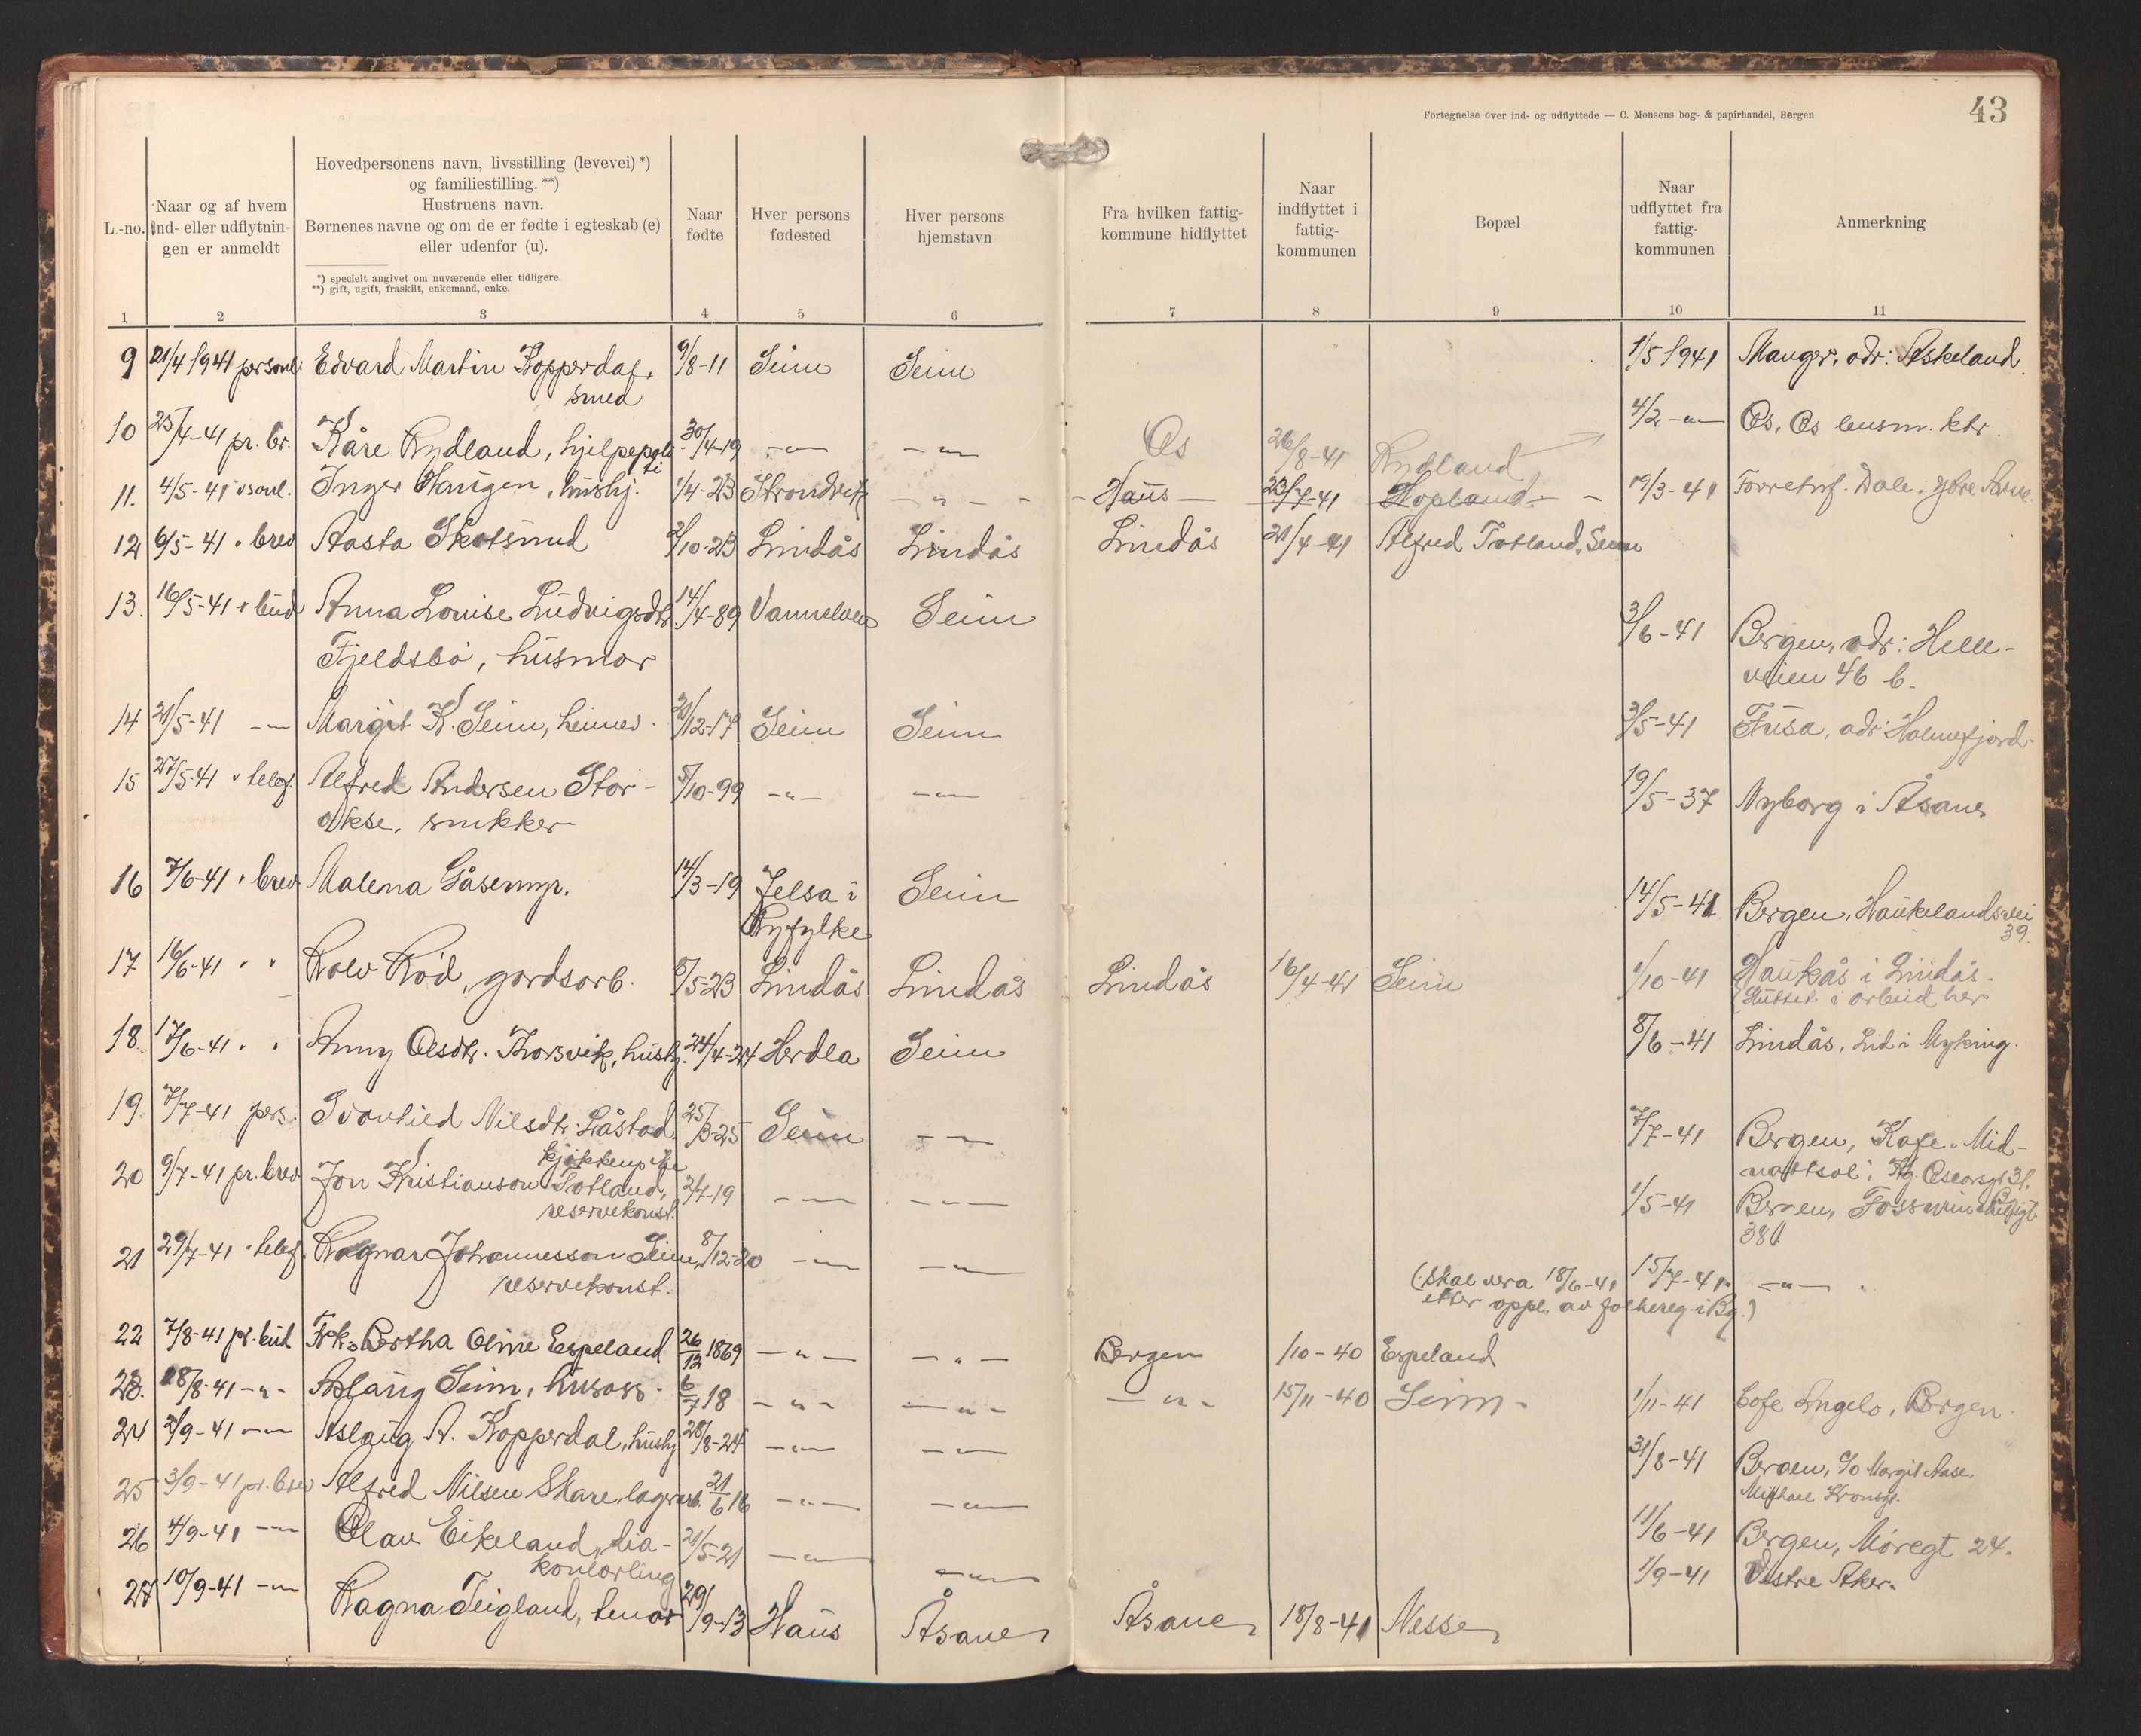 43
Fortegnelse over ind- og udflyttede — C. Monsens bog- & papirhandel, Bergen
L.-no.
Naar og af hvem
ind- eller udflytnin-
gen er anmeldt
Hovedpersonens navn, livsstilling (levevei) *)
og familiestilling. **)
Hustruens navn.
Børnenes navne og om de er fødte i egteskab (e)
eller udenfor (u).
*) specielt angivet om nuværende eller tidligere.
**) gift, ugift, fraskilt, enkemand, enke.
Naar
fødte
Hver persons
fødested
Hver persons
hjemstavn
Fra hvilken fattig-
kommune hidflyttet
Naar
indflyttet i
fattig-
kommunen
Bopæl
Naar
udflyttet fra
fattig-
kommunen
Anmerkning
1 2 3 4 5 6 7 8 9 10 11
9 21/4 1941 personl. Edvard Martin Kopperdal, 9/8-11 Seim Seim 1/5 1941 Manger, adr: Askeland.
smed
10 25/4-41 pr. br. Kåre Rydland, hjelpepoli- 30/4-19 -"- -"- Os 26/8-41 Rydland 4/2 -"- Os, Os lensm. ktr.
ti
11. 4/5-41 Inger Haugen, hushj. 1/4-23 Strandvik -"- Haus 23/7-41 Hopland 19/3-41 Dale, Ytre Arne.
12 6/5-41 " brev Aasta Skotsund 2/10-23 Lindås Lindås Lindås 21/4-41 Alfred Totland, Seim
13. 16/5-41 " bud Anna Louise Ludvigsdtr. 14/4-89 Vannelven Seim 3/6-41 Bergen, adr: Helle-
Fjeldsbø, husmor veien 46 b.
14 21/5-41 -"- Margit K. Seim, heimev. 20/12-17 Seim Seim 3/5-41 Fusa, adr: Holmefjord.
15 27/5-41 " telef. Alfred Andersen Stor- 5/10-99 -"- -"- 19/5-37 Nyborg i Åsane
okse, snikker
16 7/6-41 " brev Malena Gåsemyr. 14/3-19 Jelsa i Seim 14/5-41 Bergen, Haukelandsvei
Ryfylke 39.
17 16/6-41 " " Rolv Rød, gardsarb. 8/5-23 Lindås Lindås Lindås 16/4-41 Seim 1/10-41 Haukås i Lindås.
(Sluttet i arbeid her
18 17/6-41 " " Anny Olsdtr. Thorsvik, hushj. 24/4-24 Herdla Seim 8/6-41 Lindås, Lid i Myking.
19 7/7-41 pers. Svanhild Nilsdtr. Låstad, 25/3-25 Seim -"- 7/7-41 Bergen, Kafe "Mid-
kjøkkenpike nattsol", Kg. Oscarsgt 31.
20 9/7-41 pr. brev Jon Kristianson Totland, 2/4-19 -"- -"- 1/5-41 Bergen, Fosswinckelsgt
reservekonst. 38
21 29/7-41 " telef. Ragnar Johannesson Seim, 8/12-20 -"- -"- 15/7-41 -"-
reservekonst. (skal vera 18/6-41
etter oppl. av folkereg. i Bg.)
22 7/8-41 pr. bud Frk. Bertha Oline Espeland 26/12 1869 -"- -"- Bergen /10-40 Espeland
23. 18/8-41 -"- Aslaug Seim, husass. 6/7 18 -"- -"- -"- 15/11-40 Seim. 1/11-41 Cafe Angelo, Bergen.
24 2/9-41 -"- Aslaug A. Kopperdal, hushj 28/8-24 -"- -"- 31/8-41 Bergen, c/o Margit Aase,
Michael Kronsgt.
25 3/9-41 pr. brev Alfred Nilsen Skare, lagerarb. 21/6 16 -"- -"- 11/6-41 Bergen, Møregt 24.
26 4/9-41 -"- Olav Eikeland, dia- 21/5-21 -"- -"- 1/9-41 Vestre Aker.
konlærling
27 10/9-41 -"- Ragna Teigland, 29/9-13 Haus Åsane Åsane 18/8-41 Nesse